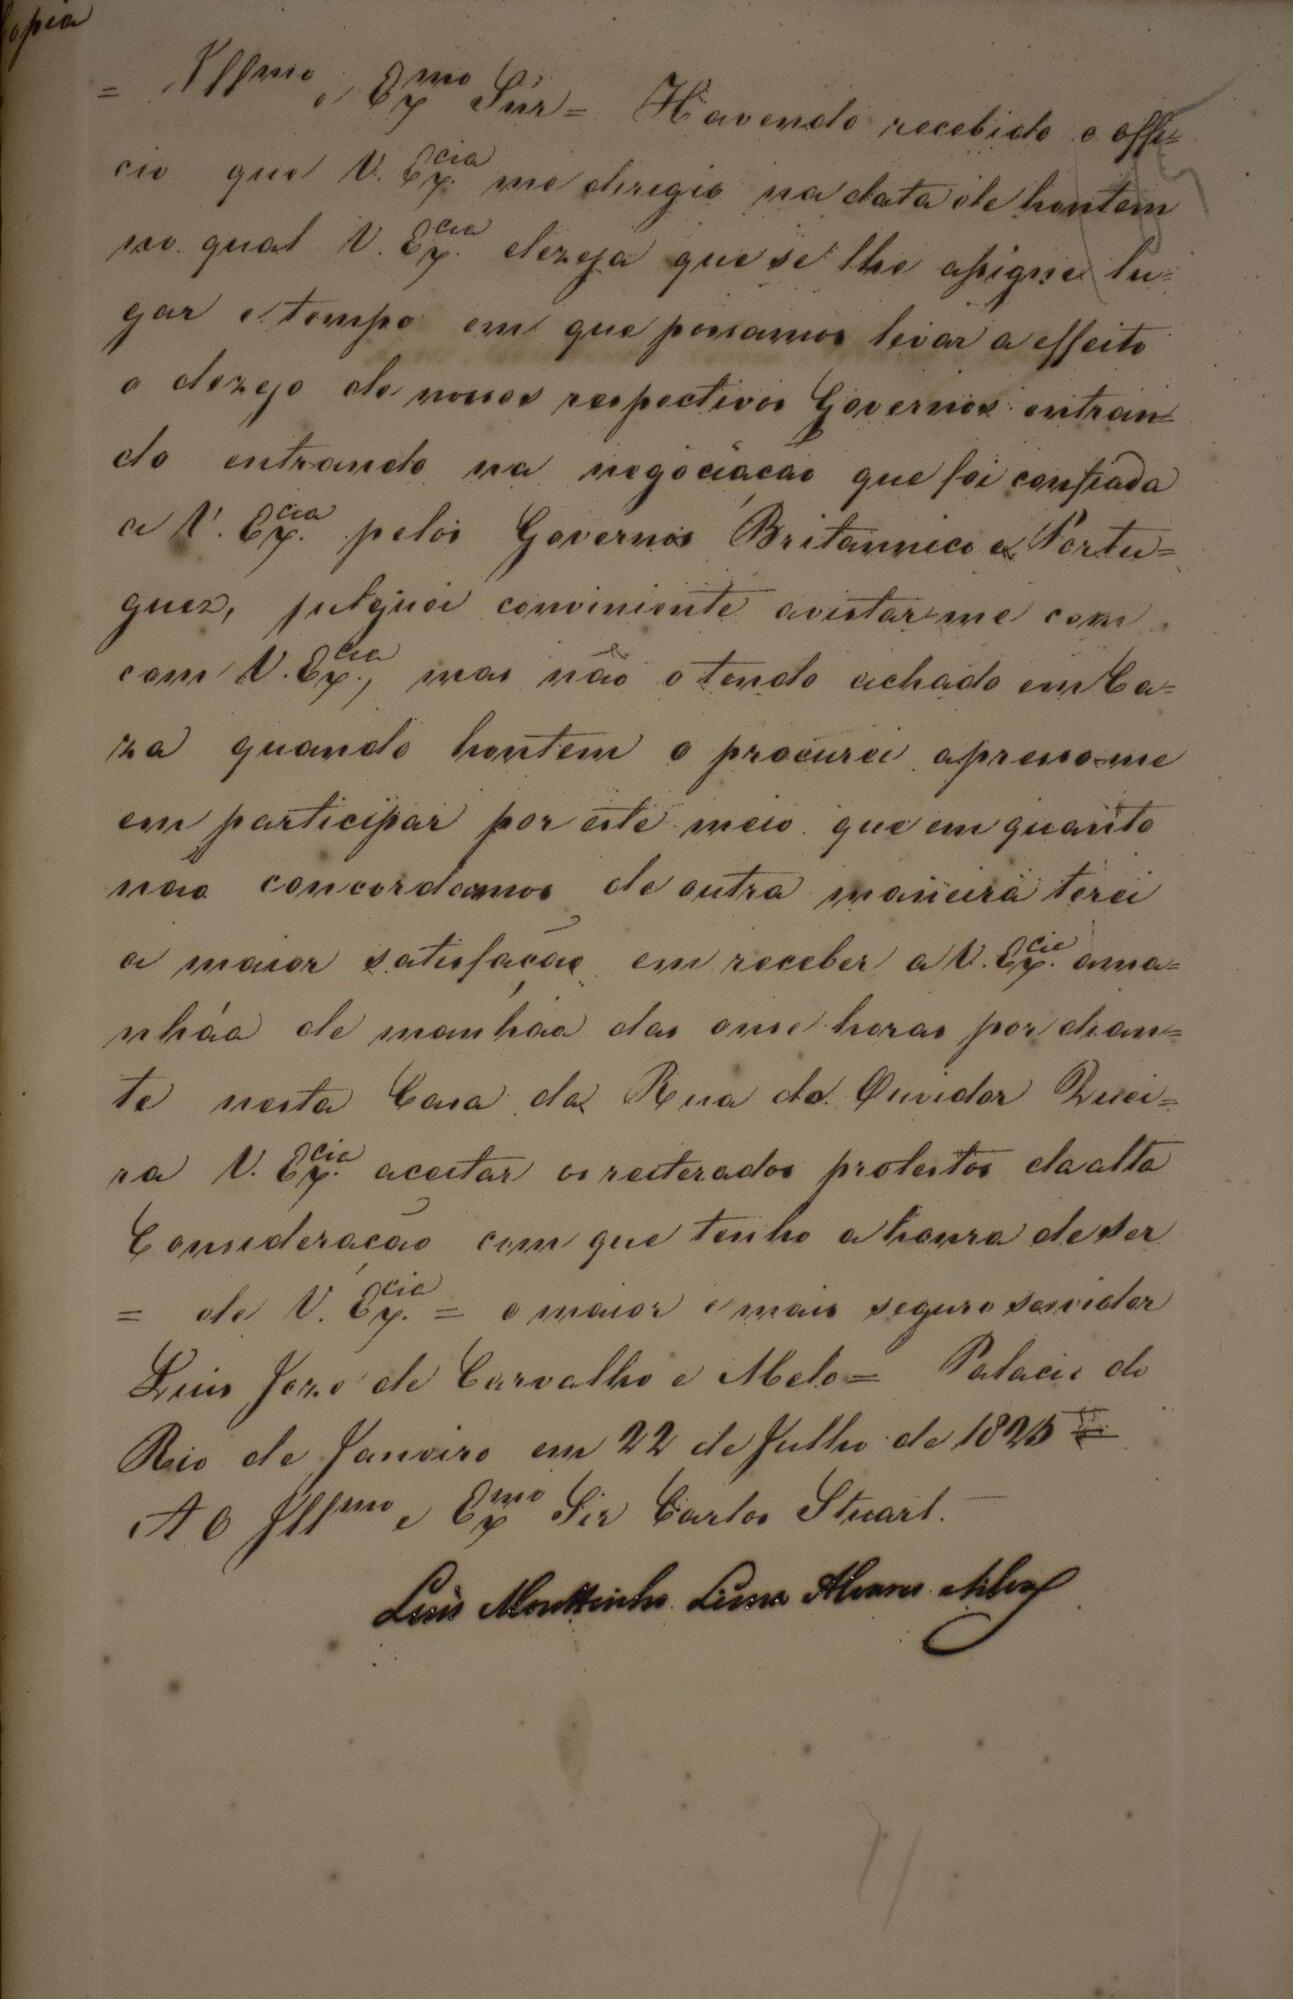 Copia
= Illmo e Exmo Snr = Havendo recebido o offi=
cio que V. Excia me deregio na data de hontem
no qual V. Excia dezeja que se lhe assigne lu=
gar e tempo em que possamos levar a effeito
o dezejo de nossos respectivos Governos entran=
do entrando na negociação que foi confiada
a V. Excia pelos Governos Britannico e Portu=
guez, julguei conviniente avistar-me com
com V. Excia, mas não o tendo achado em Ca=
za quando hontem o procurei apresso-me
em participar por este meio que em quanto
não concordamos de outra maneira terei
a maior satisfação em receber a V. Excia ama=
nhãa de manhãa das onse horas por dian=
te nesta Casa da Rua do Ouvidor Quei=
ra V. Excia aceitar os reiterados protestos da alta
Consideração com que tenho a honra de ser
= de V. Excia = o maior e mais seguro servidor
Luis Joze de Carvalho e Melo = Palacio do
Rio de Janeiro em 22 de Julho de 1825 =
AO Illmo e Exmo Sir Carlos Stuart.
Luis Mouttinho Lima Alvares e Silva